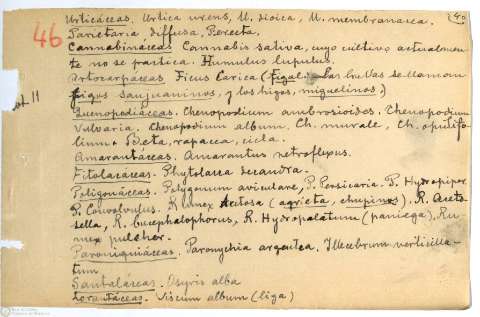 Urticáceas. Urtica urens, U. dioica, U. membranacea.
46
Parietaria diffusa, P. erecta.
Cannabináceas Cannabis sativa, cuyo cultivo actualmen-
te no se practica. Humulus lupulus.
Artocarpáceas. Ficus Carica (Figal. Las brevas se llaman
figos sanjuaninos, y los higos, miguelinos)
Quenopodiáceas. Chenopodium ambrosioides. Chenopodium
Vulvaria. Chenopodium album. Ch. murale, Ch. opulifo-
lium. Beta, rapacea, cicla.
Amarantáceas. Amarantus retroflexus.
Fitolacáceas. Phytolacca decandra.
Poligonáceas. Polygonum aviculare, P. Persicaria. P. Hydropiper
P. Convolvulus. Rumex Acetosa (agrieta, chupinos), R. Aceto-
sella, R. bucephalophorus, R. Hydrolapatum (paniega), Ru-
mex pulcher.
Paroniquiáceas. Paronychia argentea. Illecebrum verticilla-
tum
Santaláceas. Osyris alba
Lorantáceas. Viscum album (liga)